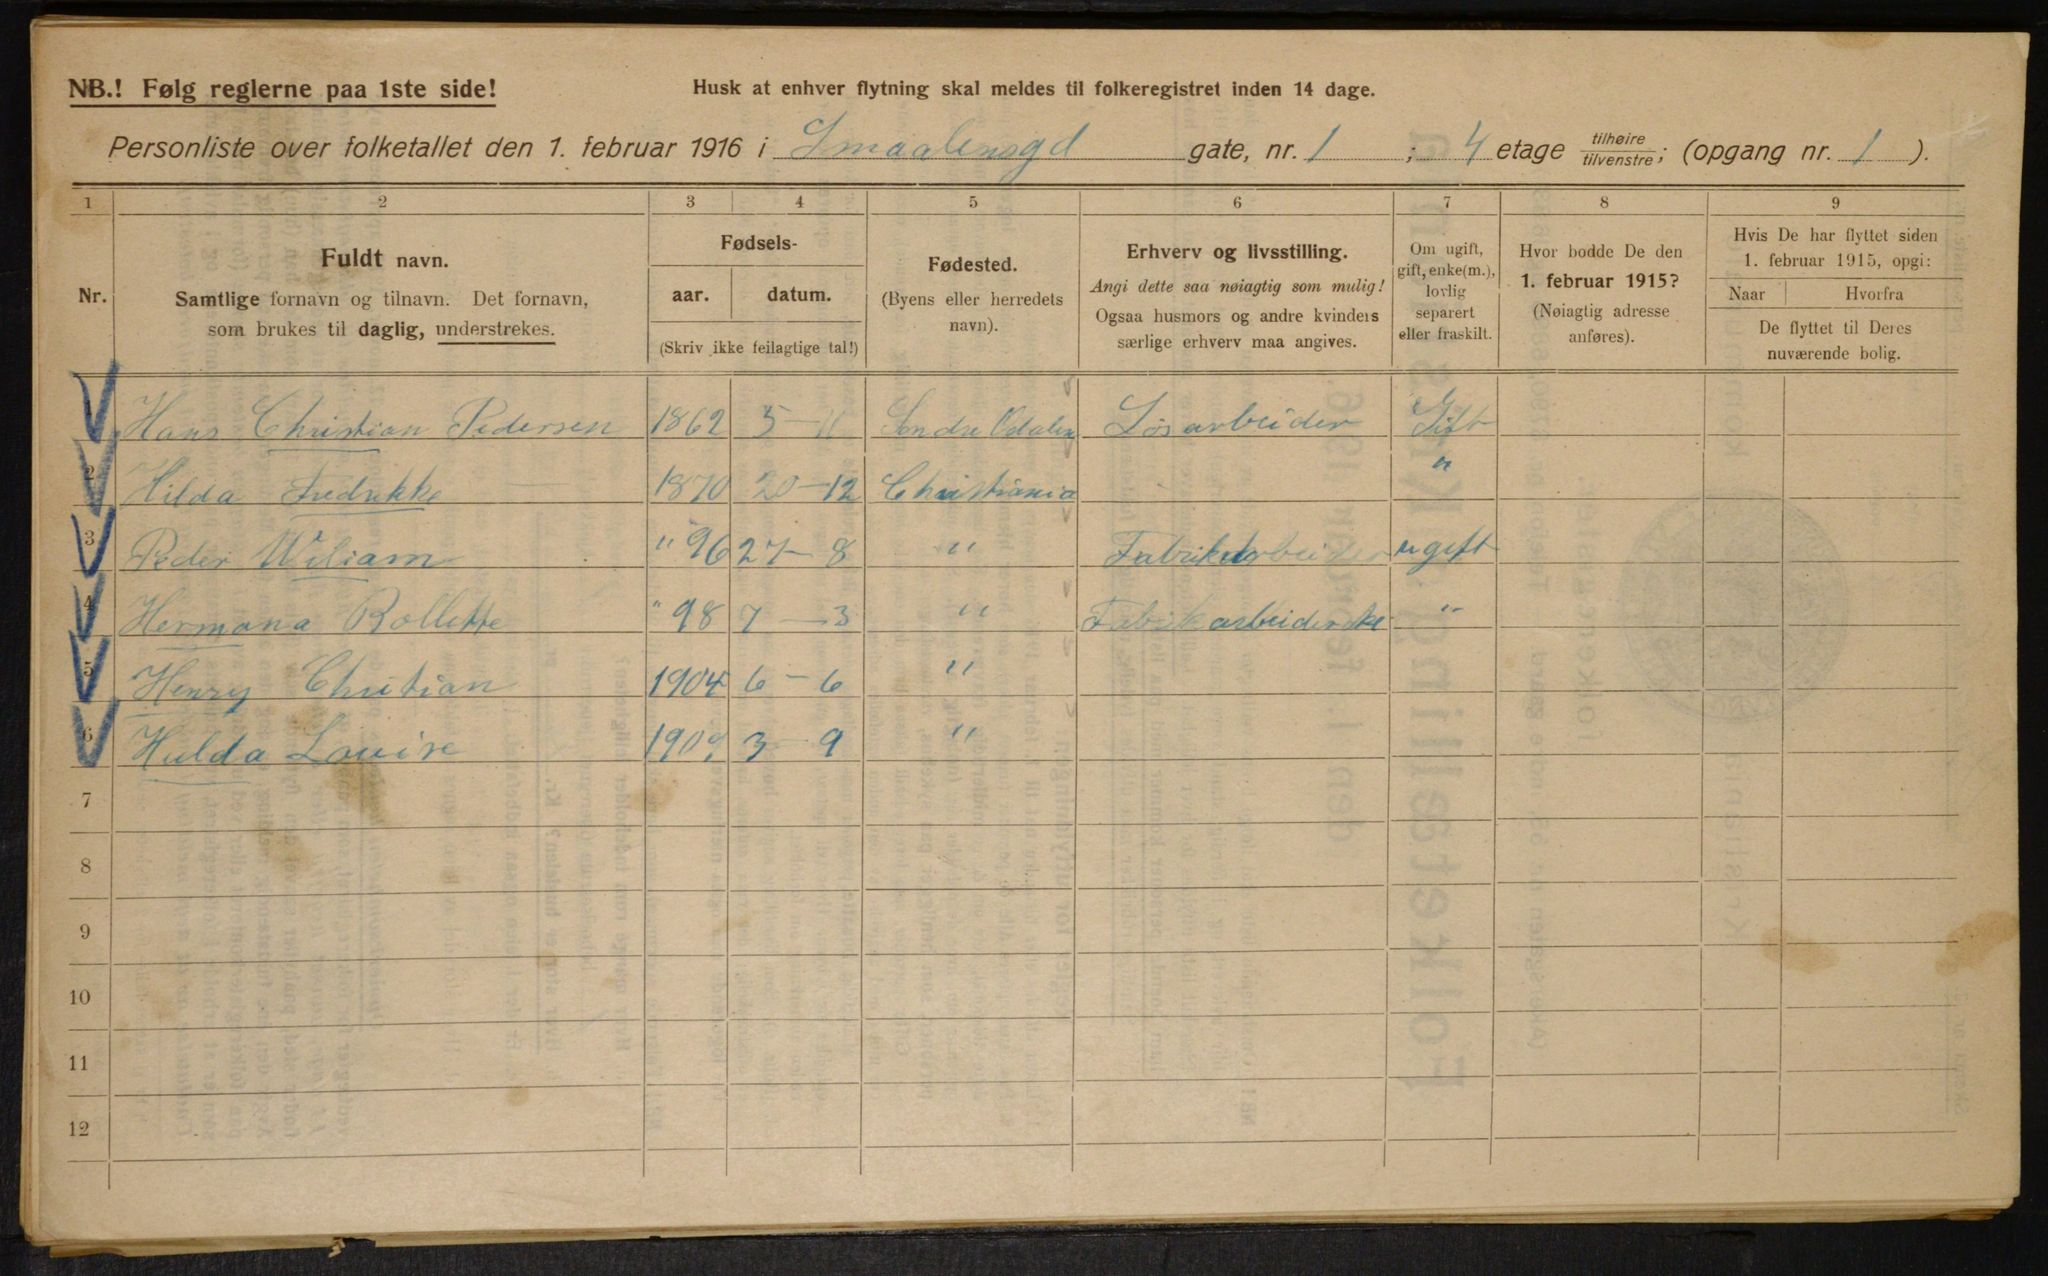 NB.! Følg reglerne paa 1ste side!
Husk at enhver flytning skal meldes til folkeregistret inden 14 dage.
Personliste over folketallet den 1. februar 1916 i Smaalensgd gate, nr. 1 ; 4 etage tilhøire tilvenstre; (opgang nr. 1 ).
1 2 3 4 5 6 7 8 9
Nr.
Fuldt navn.
Samtlige fornavn og tilnavn. Det fornavn,
som brukes til daglig, understrekes.
Fødsels-
aar. datum.
(Skriv ikke feilagtige tal!)
Fødested.
(Byens eller herredets
navn).
Erhverv og livsstilling.
Angi dette saa nøiagtig som mulig!
Ogsaa husmors og andre kvinders
særlige erhverv maa angives.
Om ugift,
gift, enke(m.),
lovlig
separert
eller fraskilt.
Hvor bodde De den
1. februar 1915?
(Nøiagtig adresse
anføres).
Hvis De har flyttet siden
1. februar 1915, opgi:
Naar Hvorfra
De flyttet til Deres
nuværende bolig.
Hans Christian Pedersen 1862 5-11 Søndre Odalen Løsarbeider Gift
2 Hilda Fredrikke 1870 20-12 Christiania "
3 Peder Wiliam " 96 27-8 " Fabrikarbeider ugift
4 Hermana Rollette " 98 7-3 " Fabrikarbeiderske "
5 Henry Chritian 1904 6-6 "
6 Hulda Louise 1909 3 9 "
7
8
9
10
11
12